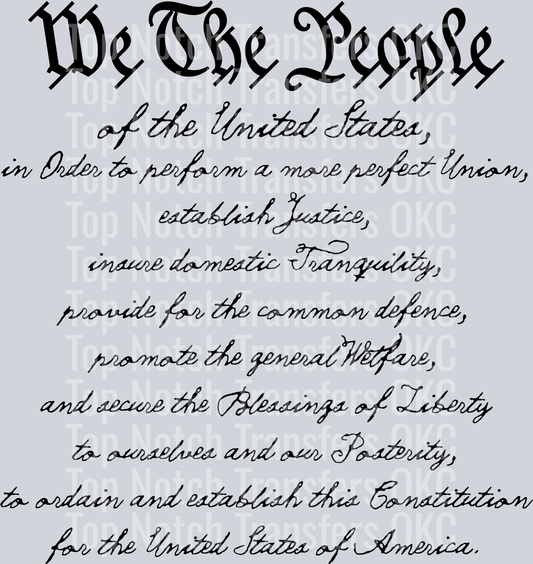 We The People
of the United States,
in Order to perform a more perfect Union,
establish Justice,
insure domestic Tranquility,
provide for the common defence,
promote the general Welfare,
and secure the Blessings of Liberty
to ourselves and our Posterity,
to ordain and establish this Constitution
for the United States of America.
Top Notch Transfers OKC
Top Notch Transfers OKC
Top Notch Transfers OKC
Top Notch Transfers OKC
Top Notch Transfers OKC
Top Notch Transfers OKC
Top Notch Transfers OKC
Top Notch Transfers OKC
Top Notch Transfers OKC